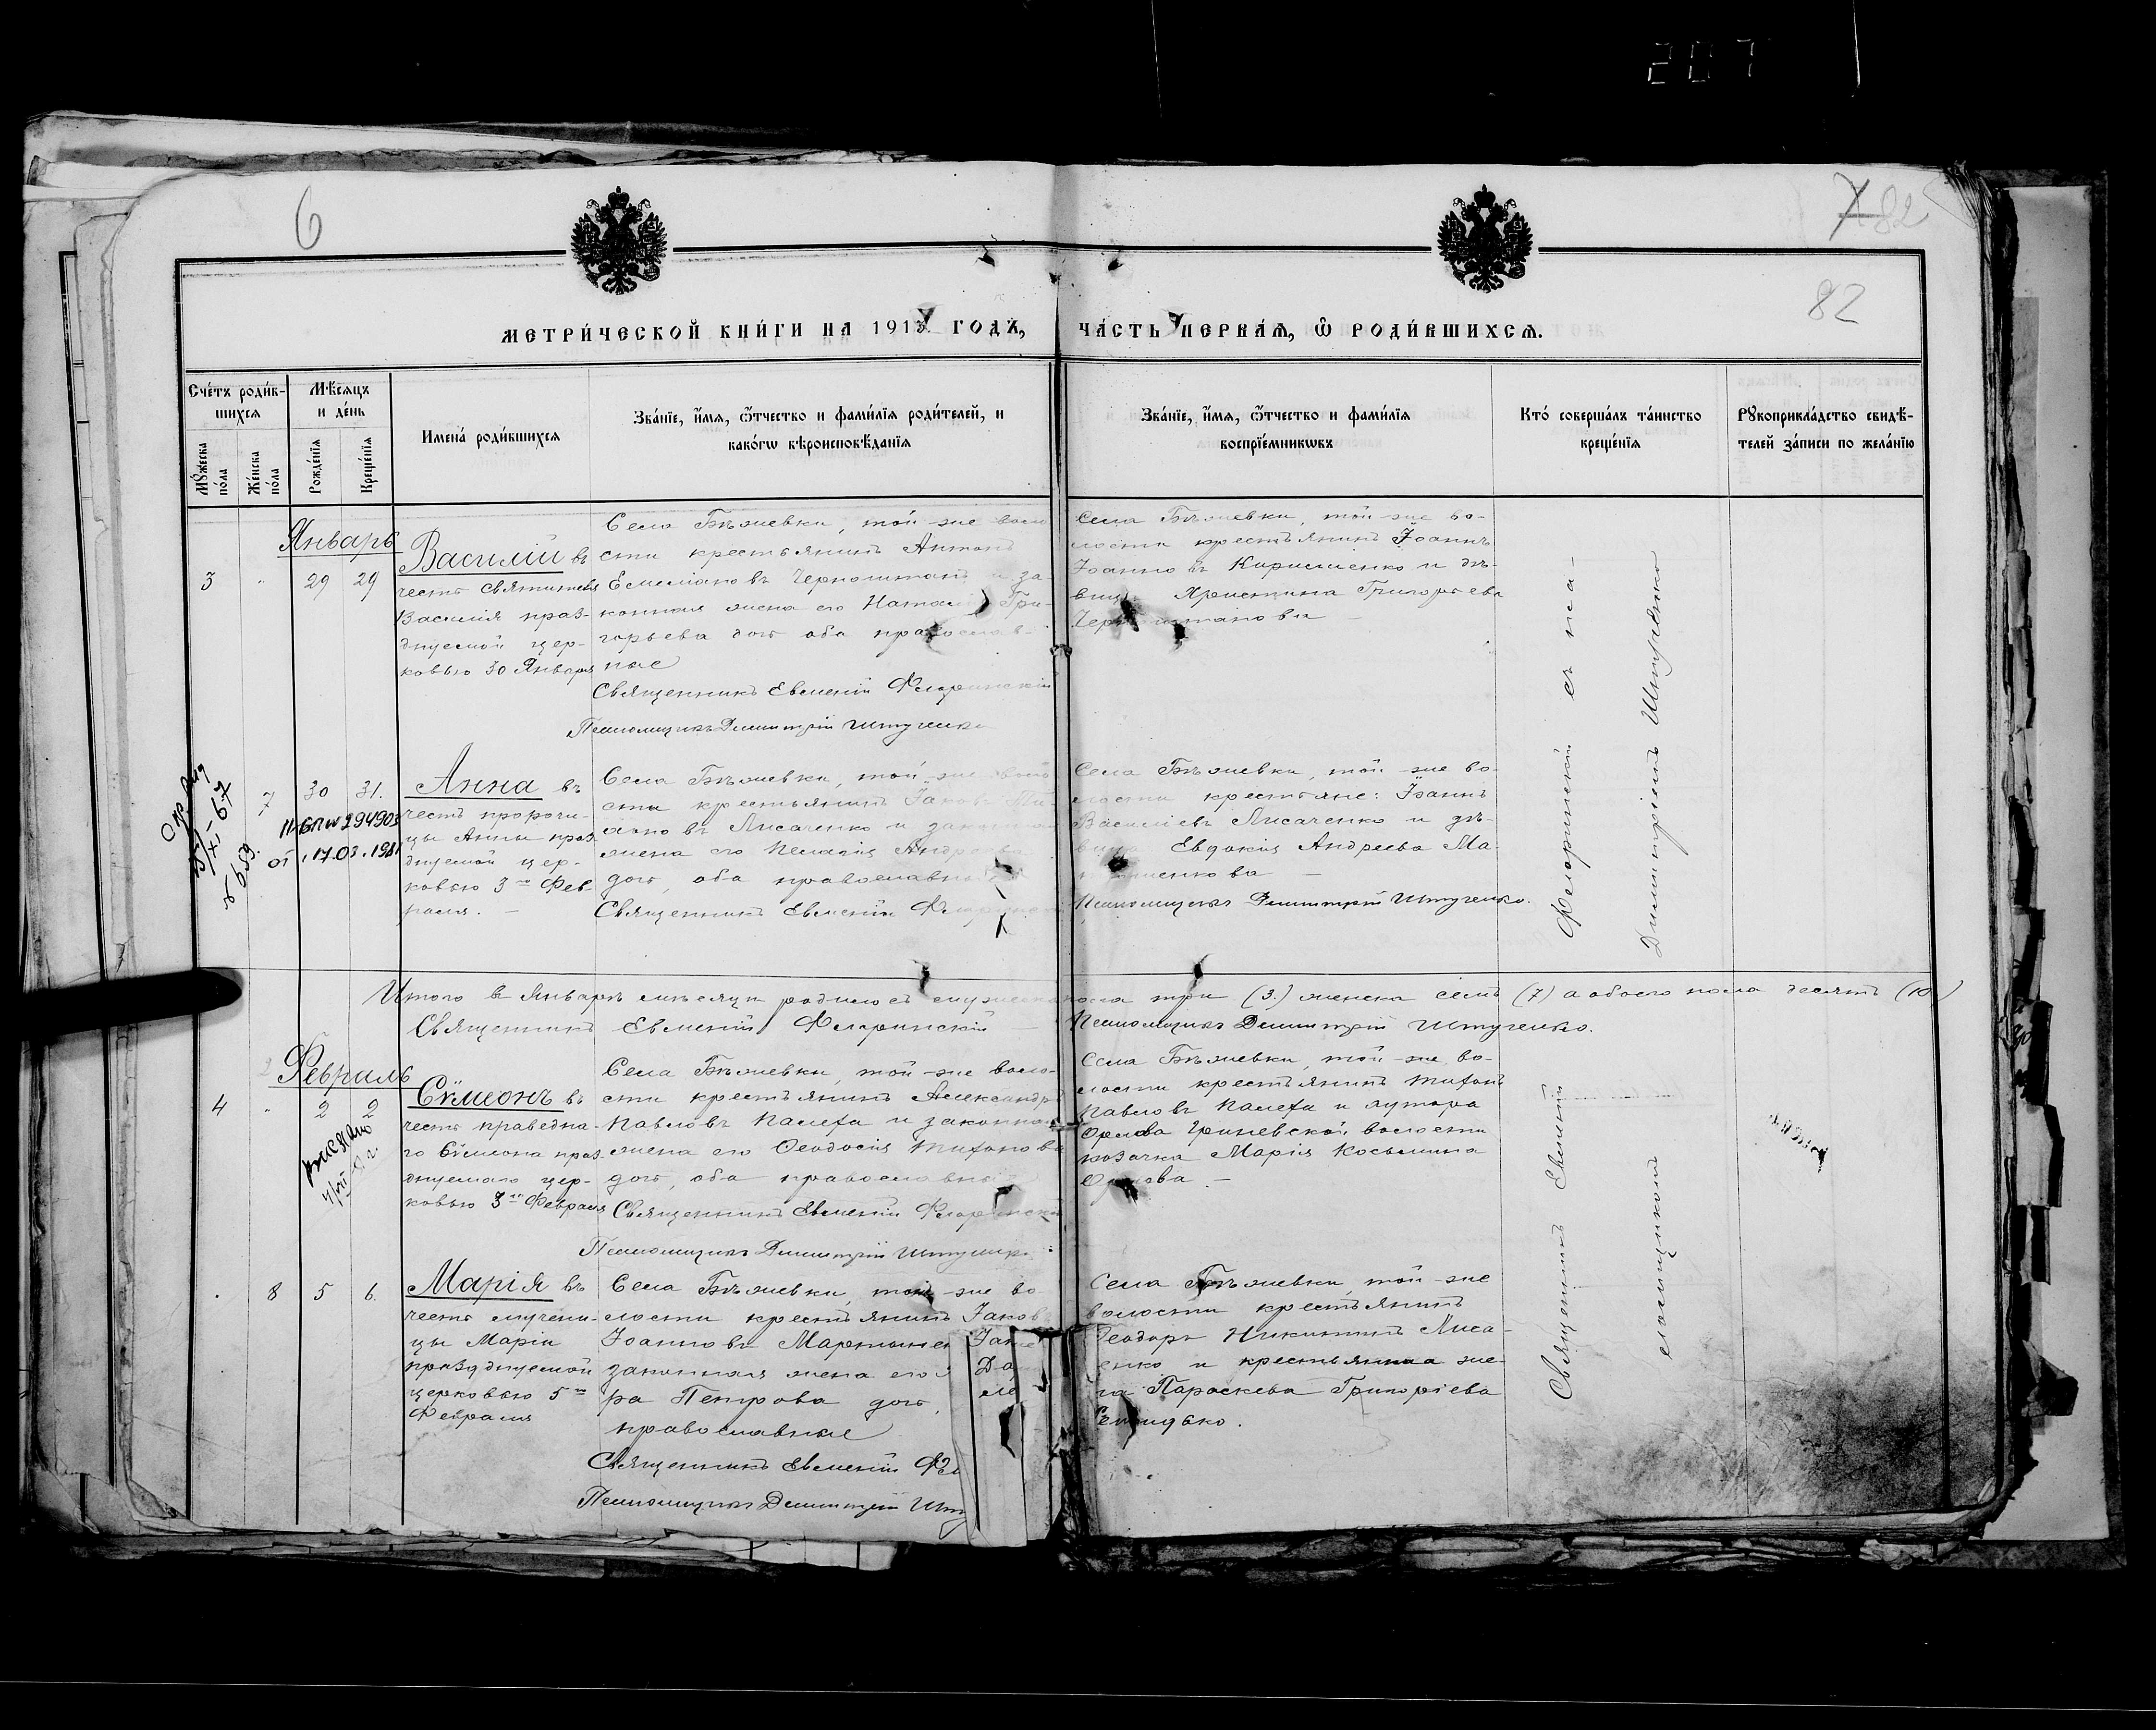 207
6
82
82
МЕТРИ́ЧЕСКОЙ КНИ́ГИ НА 191 ГОДЪ, ЧА́СТЬ ПЕРВА́Я, Ѡ҆ РОДИ́ВШИХСЯ.
Сче́тъ роди́в-
шихся
Мꙋ́жеска по́ла
Же́нска по́ла
Мѣ́сяцъ
и де́нь
Рожде́нїя
Креще́нїя
Имена́ роди́вшихся
Зва́нїе, и҆́мя, ѻ҆́тчество и фами́лїя роди́телей, и
како́гѡ вѣроисповѣ́данїя
Зва́нїе, и҆́мя, ѻ҆́тчество и фами́лїя
воспрїе́мникѡвъ
Кто́ соверша́лъ та́инство
креще́нїя
Рꙋкоприкла́дство свидѣ́-
телей за́писи по жела́нїю
Январь
3 " 29 29
Василій въ
честь Святителя
Василія праз-
днуемой цер-
ковью 30 Января
Села Бѣжевки, той-же воло
сти крестьянинъ Антонъ
Емеліановъ и за-
конная жена его Гри-
горьева дочь оба православ-
ные
Священникъ Евменій Флоринскій
Псаломщикъ Димитрій Штученко
Села Бѣжевки, той-же во-
лости крестьянинъ Іоаннъ
Іоанновъ Кириленко и дѣ-
Григорьева
7 30 31.
Анна въ
честь пророчи-
цы Анны праз
днуемой цер-
ковью 3го Фев-
раля. —
294903
17.03.1981
Села Бѣжевки, той-же
сти крестьянинъ Іаковъ
Лисаченко и
жена его Пелагія
дочь, оба православные
Священникъ Евменій
Села Бѣжевки, той-же во-
лости крестьяне: Іоаннъ
Василіевъ Лисаченко и дѣ-
вица Евдокія Андреева Ма-
Псаломщикъ Димитрій Штученко.
Итого в Январѣ мѣсяцѣ родилось мужеска пола три (3.) женска семь (7) а обоего пола десять (10)
Священникъ Евменій Флоринскій Псаломщикъ Димитрій Штученко.
Февраль
4 " 2 2
Сѵмеонъ въ
честь праведна-
го Сѵмеона праз
днуемаго цер-
ковью 3го Февраля
Села Бѣжевки, той-же воло-
сти крестьянинъ Александръ
Павловъ Палеха и законная
жена его Ѳеодосія Тифонова
дочь, оба православные
Священникъ Евменій Флоринскій
Псаломщикъ Димитрій Штученко
Села Бѣжевки, той-же во-
лости крестьянинъ Тифонъ
Павловъ Палеха и хутора
Орлова волости
козачка Марія Косьмина
Орлова. —
8 5 6.
Марія въ
честь мучени-
цы Маріи
празднуемой
церковью 5го
Февраля
Села Бѣжевки, той-же во
лости крестьянинъ Іаков
Іоанновъ
законная жена его
ра Петрова дочь,
православные
Священникъ Евменій Фл
Псаломщикъ Димитрій Шту
Села Бѣжевки, той-же
волости крестьянинъ
Ѳеодоръ Никитинъ Лиса-
енко и крестьянка же-
на Параскева Григоріева
Священникъ Евменій Флоринскій съ пса-
ломщикомъ Димитріемъ Штученко